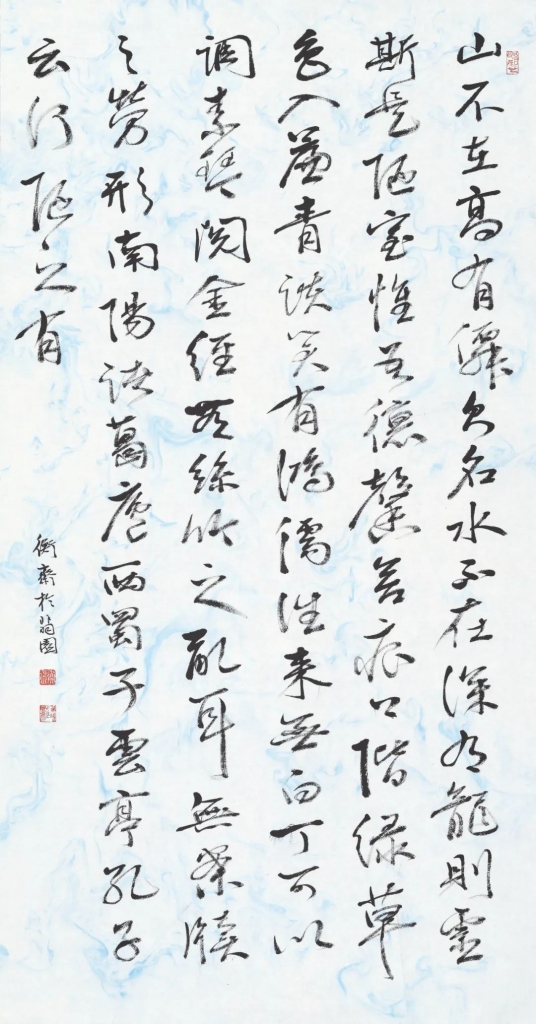 山不在高有僊則名水不在深有龍則靈
斯是陋室惟吾德馨苔痕上階綠草
色入簾青談笑有鴻儒往来無白丁可以
調素琴閱金經無絲竹之亂耳無案牘
之勞形南陽諸葛廬西蜀子雲亭孔子
云何陋之有
衡齋於園